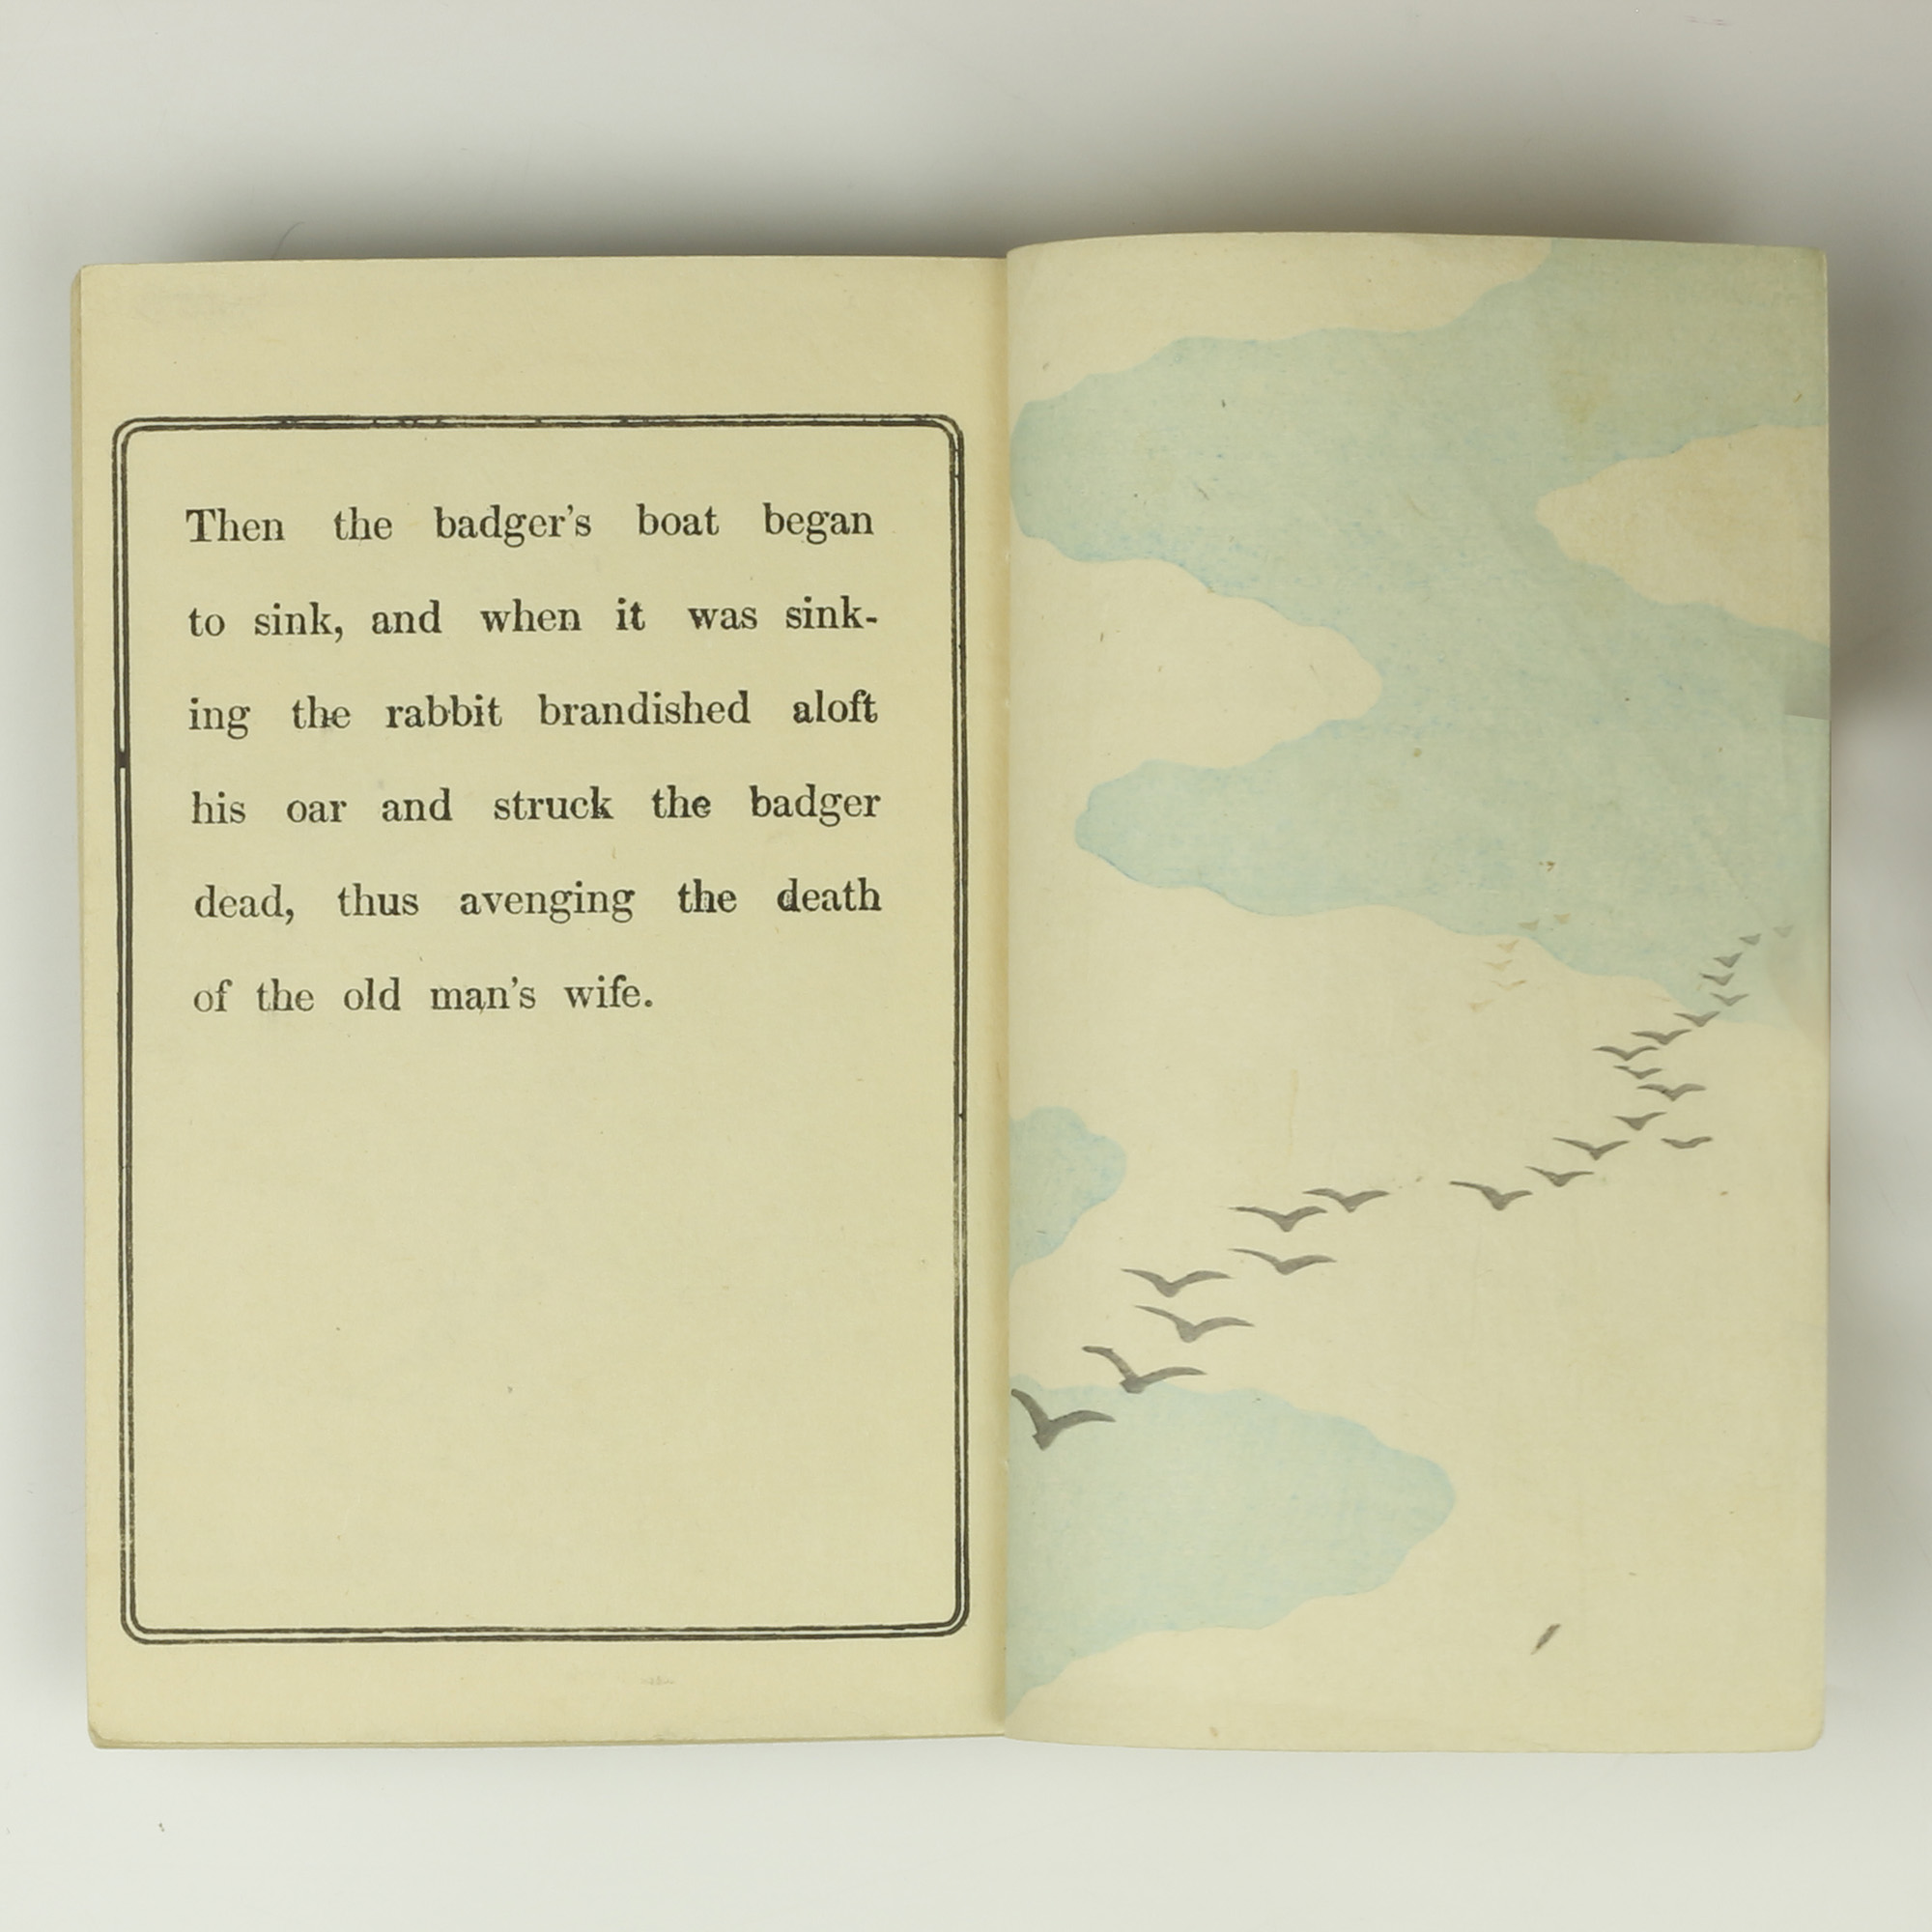 Then the badger's boat began
to sink, and when it was sink-
ing the rabbit brandished aloft
his oar and struck the badger
dead, thus avenging the death
of the old man's wife.